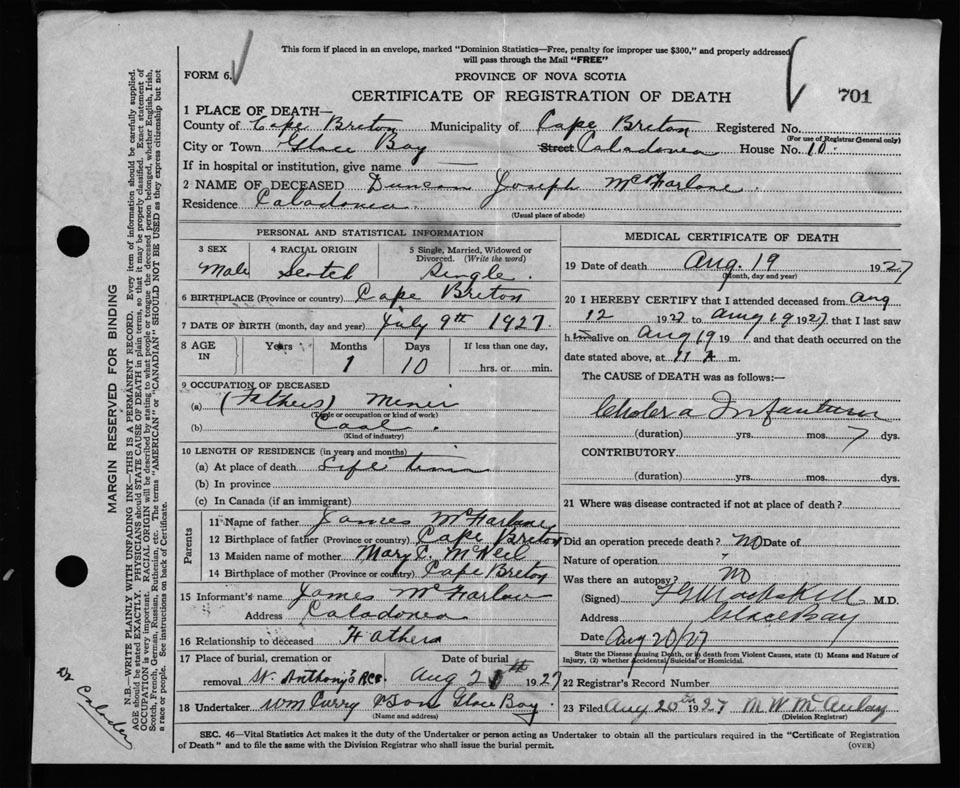 This form if placed in an envelope, marked "Dominion Statistics—Free, penalty for improper use $300," and properly addressed
will pass through the Mail "FREE"
FORM 6.
PROVINCE OF NOVA SCOTIA
CERTIFICATE OF REGISTRATION OF DEATH
701
1 PLACE OF DEATH—
County of Cape Breton Municipality of Cape Breton Registered No.
(For use of Registrar General only)
City or Town Glace Bay Street Caladonea House No. 10
If in hospital or institution, give name —
2 NAME OF DECEASED Duncan Joseph McFarlane
Residence Caladonea
(Usual place of abode)
PERSONAL AND STATISTICAL INFORMATION
3 SEX 4 RACIAL ORIGIN 5 Single, Married, Widowed or Divorced. (Write the word)
Male Scotch Single.
6 BIRTHPLACE (Province or country) Cape Breton
7 DATE OF BIRTH (month, day and year) July 9th 1927
8 AGE IN Years Months Days If less than one day,
1 10 hrs. or min.
9 OCCUPATION OF DECEASED
(a) (Fathers) Miner
(Trade or occupation or kind of work)
(b) Coal.
(Kind of industry)
10 LENGTH OF RESIDENCE (in years and months)
(a) At place of death Life time
(b) In province
(c) In Canada (if an immigrant)
Parents
11 Name of father James McFarlane
12 Birthplace of father (Province or country) Cape Breton
13 Maiden name of mother Mary C. McNeil
14 Birthplace of mother (Province or country) Cape Breton
15 Informant's name James McFarlane
Address Caladonea
16 Relationship to deceased Father
17 Place of burial, cremation or removal St. Anthony's Date of burial Aug 1927
18 Undertaker Wm Curry & Son Glace Bay.
(Name and address)
MEDICAL CERTIFICATE OF DEATH
19 Date of death Aug. 19 1927
(Month, day and year)
20 I HEREBY CERTIFY that I attended deceased from Aug
12 1927 to Aug 19 1927 that I last saw
h alive on Aug 19 19 and that death occurred on the
date stated above, at 11 A m.
The CAUSE OF DEATH was as follows:—
Cholera Infantum
(duration) yrs. mos. 7 dys.
CONTRIBUTORY
(duration) yrs. mos. dys.
21 Where was disease contracted if not at place of death?
Did an operation precede death? No Date of
Nature of operation
Was there an autopsy? No
(Signed) M.D.
Address Glace Bay
Date Aug 20/27
State the Disease causing Death, or in death from Violent Causes, state (1) Means and Nature of
Injury, (2) whether Accidental, Suicidal or Homicidal.
22 Registrar's Record Number
23 Filed Aug 20th 1927 M. W. McAulay
(Division Registrar)
SEC. 46—Vital Statistics Act makes it the duty of the Undertaker or person acting as Undertaker to obtain all the particulars required in the "Certificate of Registration
of Death" and to file the same with the Division Registrar who shall issue the burial permit.
(OVER)
MARGIN RESERVED FOR BINDING
N.B.—WRITE PLAINLY WITH UNFADING INK—THIS IS A PERMANENT RECORD. Every item of information should be carefully supplied.
AGE should be stated EXACTLY. PHYSICIANS should STATE CAUSE OF DEATH in plain terms, so that it may be properly classified. Exact statement of
OCCUPATION is very important. RACIAL ORIGIN will be described by stating to what people or tongue the deceased person belonged, whether English, Irish,
Scotch, French, German, Russian, Ruthenian, etc. The terms "AMERICAN" or "CANADIAN" SHOULD NOT BE USED as they express citizenship but not
a race or people. See instructions on back of Certificate.